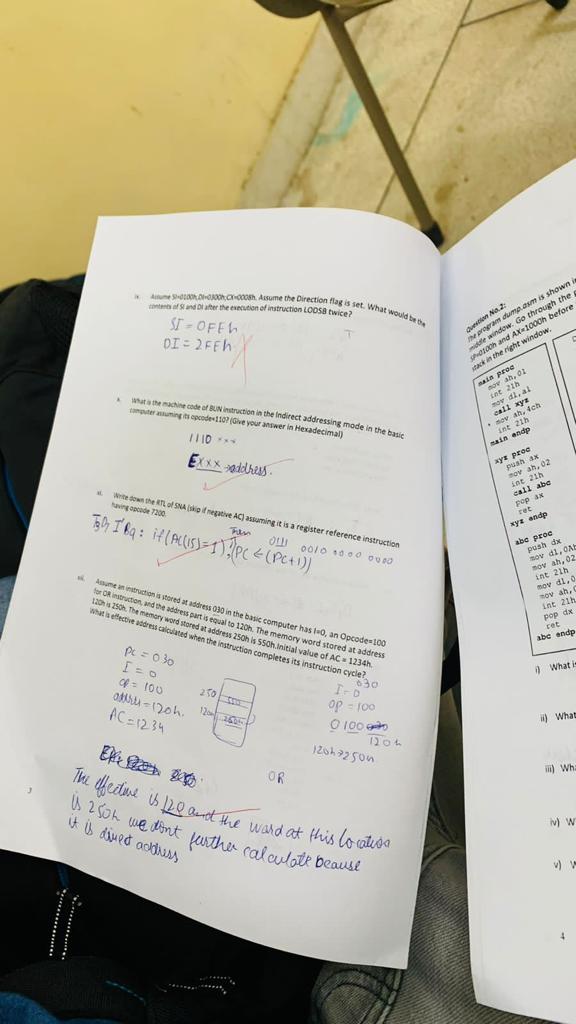 ix. Assume SI=0100h,DI=0300h;CX=0008h. Assume the Direction flag is set. What would be the
contents of SI and DI after the execution of instruction LODSB twice?
SI = OFEh
DI = 2FEh
x. What is the machine code of BUN instruction in the Indirect addressing mode in the basic
computer assuming its opcode=110? (Give your answer in Hexadecimal)
1110 xxx
Exxx → address.
xi. Write down the RTL of SNA (skip if negative AC) assuming it is a register reference instruction
having opcode 7200.
0111 0010 0000 0000
: if (AC(15) = 1), then (PC ← (PC+1))
xii. Assume an instruction is stored at address 030 in the basic computer has I=0, an Opcode=100
for OR instruction, and the address part is equal to 120h. The memory word stored at address
120h is 250h. The memory word stored at address 250h is 550h.Initial value of AC = 1234h.
What is effective address calculated when the instruction completes its instruction cycle?
PC = 030
I = 0
OP = 100
address = 120h.
AC = 1234
250 550
120h 250h
030
I = 0
OP = 100
0 100
120h
120h → 250h
OR
The effective is 120 and the word at this location
is 250h we dont further calculate beause
it is direct address
3
Question No.2:
The program dump.asm is shown
middle window. Go through the
SP=0100h and AX=1000h before
stack in the right window.
main proc
mov ah,01
int 21h
mov dl,al
call xyz
mov ah,4ch
int 21h
main endp
xyz proc
push ax
mov ah,02
int 21h
call abc
pop ax
ret
xyz endp
abc proc
push dx
mov dl,0Ah
mov ah,02
int 21h
mov dl,0
mov ah,
int 21h
pop dx
ret
abc endp
i) What is
ii) What
iii) Wha
iv) W
v)
4